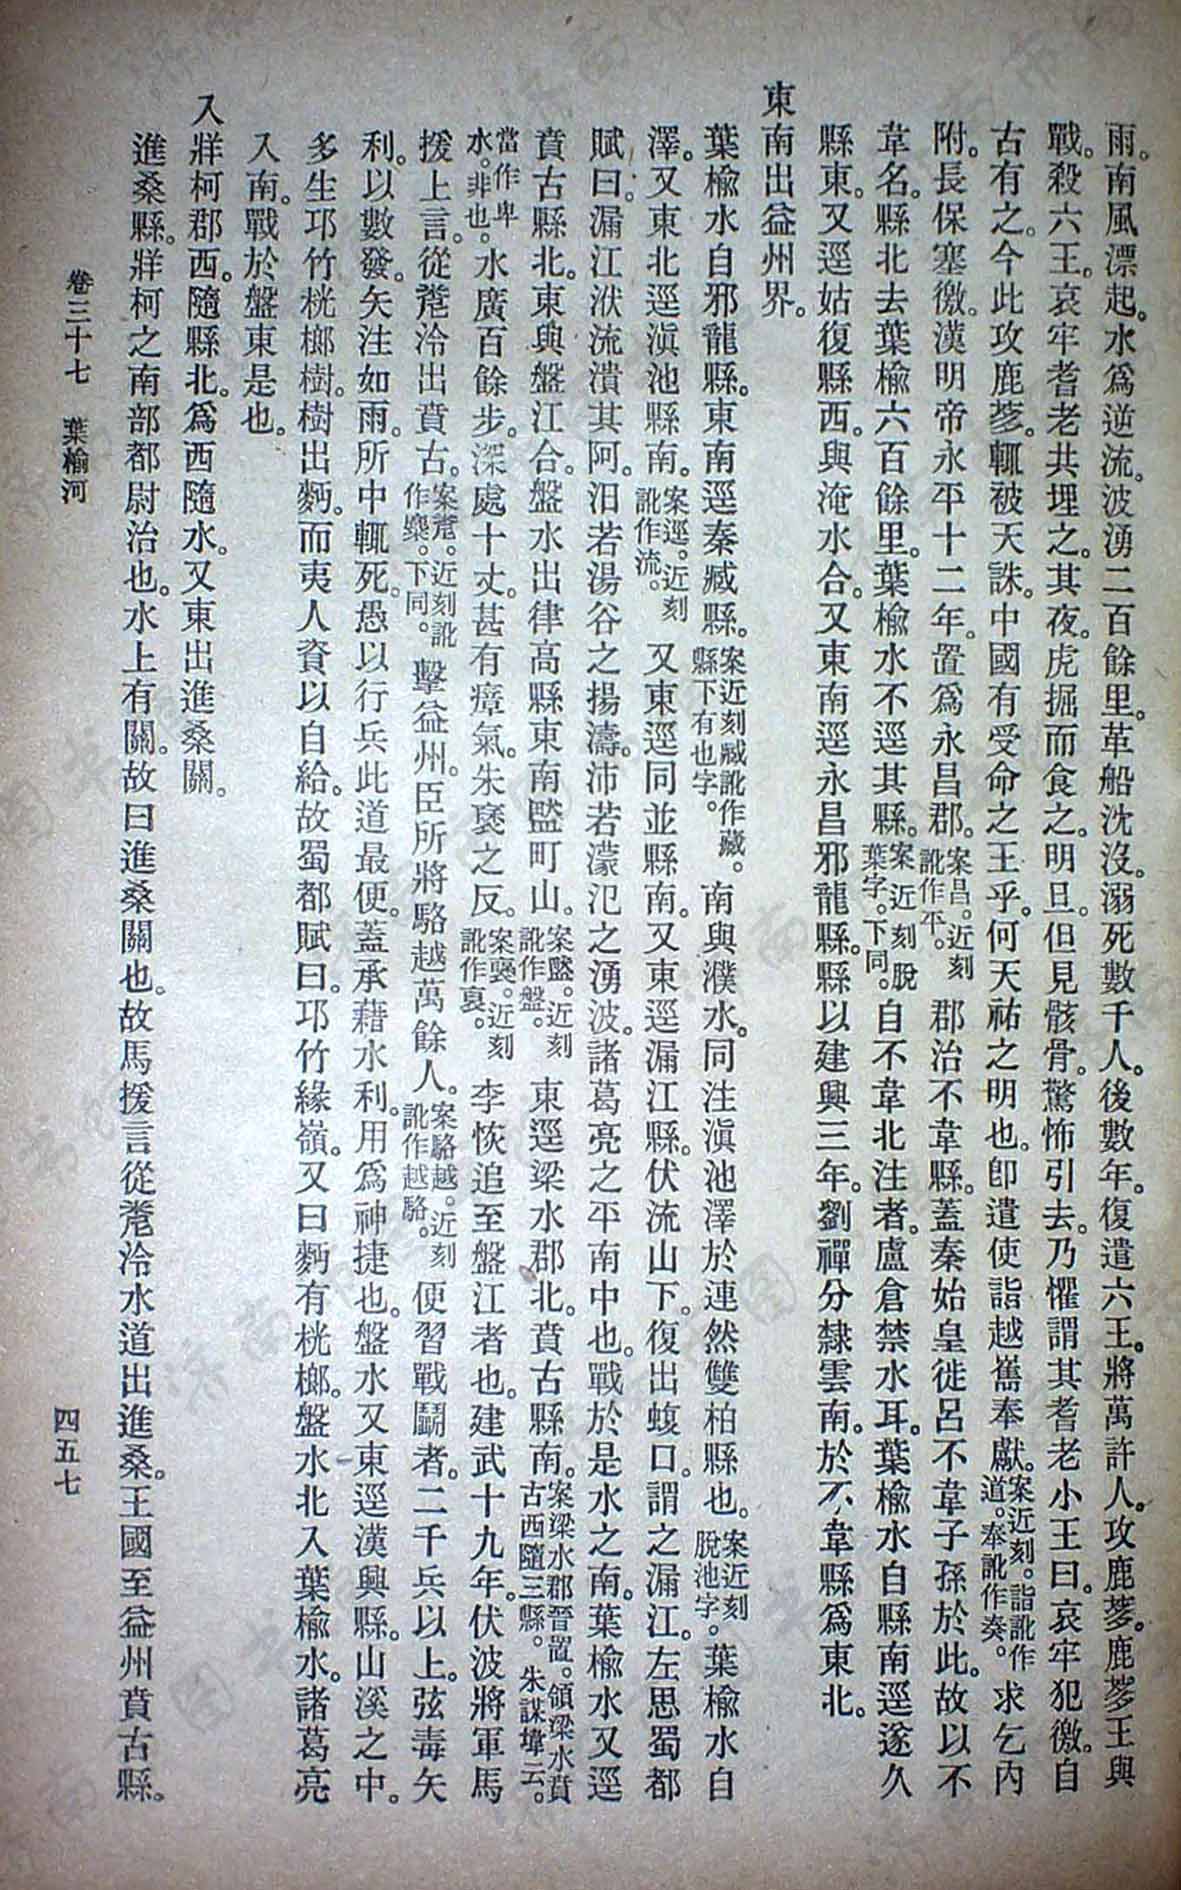 雨。南風漂起。水爲逆流。波湧二百餘里。革船沈沒。溺死數千人。後數年。復遣六王。將萬許人。攻鹿茤。鹿茤王與
戰。殺六王。哀牢耆老共埋之。其夜。虎掘而食之。明旦。但見骸骨。驚怖引去。乃懼謂其耆老小王曰。哀牢犯徼。自
古有之。今此攻鹿茤。輒被天誅。中國有受命之王乎。何天祐之明也。卽遣使詣越巂奉獻。案近刻。詣訛作道。奉訛作奏。求乞內
附。長保塞徼。漢明帝永平十二年。置爲永昌郡。案昌。近刻訛作平。郡治不韋縣。蓋秦始皇徙呂不韋子孫於此。故以不
韋名。縣北去葉楡六百餘里。葉楡水不逕其縣。案近刻脫葉字。下同。自不韋北注者。盧倉禁水耳。葉楡水自縣南逕遂久
縣東。又逕姑復縣西。與淹水合。又東南逕永昌邪龍縣。縣以建興三年。劉禪分隸雲南。於不韋縣爲東北。
東南出益州界。
葉楡水自邪龍縣。東南逕秦臧縣。案近刻臧訛作藏。縣下有也字。南與濮水。同注滇池澤於連然雙柏縣也。案近刻脫池字。葉楡水自
澤。又東北逕滇池縣南。案逕。近刻訛作流。又東逕同並縣南。又東逕漏江縣。伏流山下。復出蝮口。謂之漏江。左思蜀都
賦曰。漏江洑流潰其阿。汨若湯谷之揚濤。沛若濛汜之湧波。諸葛亮之平南中也。戰於是水之南。葉楡水又逕
賁古縣北。東與盤江合。盤水出律高縣東南盢町山。案盢。近刻訛作盤。東逕梁水郡北。賁古縣南。案梁水郡晉置。領梁水賁古西隨三縣。朱謀㙔云。
當作卑水。非也。水廣百餘步。深處十丈。甚有瘴氣。朱褒之反。案褒。近刻訛作裒。李恢追至盤江者也。建武十九年。伏波將軍馬
援上言。從麊泠出賁古。案麊。近刻訛作麋。下同。擊益州。臣所將駱越萬餘人。案駱越。近刻訛作越駱。便習戰鬭者。二千兵以上。弦毒矢
利。以數發。矢注如雨。所中輒死。愚以行兵此道最便。蓋承藉水利。用爲神捷也。盤水又東逕漢興縣。山溪之中。
多生邛竹桄榔樹。樹出麪。而夷人資以自給。故蜀都賦曰。邛竹緣嶺。又曰麪有桄榔。盤水北入葉楡水。諸葛亮
入南。戰於盤東是也。
入牂柯郡西。隨縣北。爲西隨水。又東出進桑關。
進桑縣。牂柯之南部都尉治也。水上有關。故曰進桑關也。故馬援言從麊泠水道出進桑。王國至益州賁古縣。
卷三十七 葉楡河
四五七